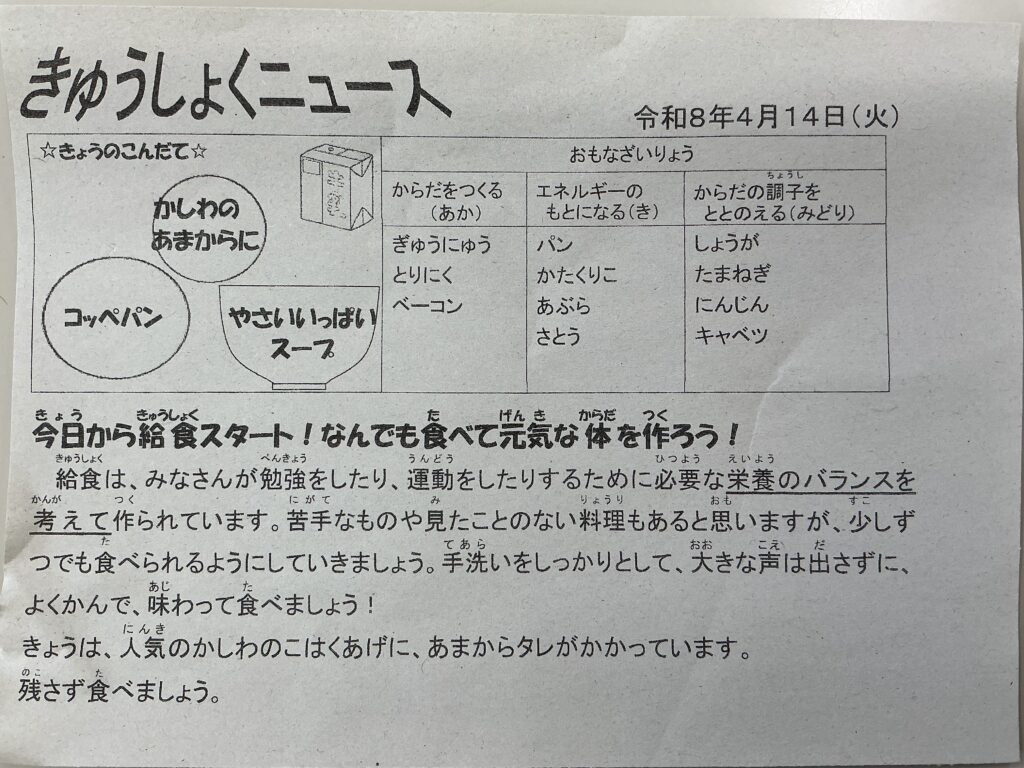 きゅうしょくニュース
令和8年4月14日(火)
☆きょうのこんだて☆
かしわの
あまからに
コッペパン
やさいいっぱい
スープ
おもなざいりょう
からだをつくる
(あか)
エネルギーの
もとになる(き)
ちょうし
からだの調子を
ととのえる(みどり)
ぎゅうにゅう
とりにく
ベーコン
パン
かたくりこ
あぶら
さとう
しょうが
たまねぎ
にんじん
キャベツ
きょう きゅうしょく た げんき からだ つく
今日から給食スタート!なんでも食べて元気な体を作ろう!
きゅうしょく べんきょう うんどう ひつよう えいよう
給食は、みなさんが勉強をしたり、運動をしたりするために必要な栄養のバランスを
かんが つく にがて み りょうり おも すこ
考えて作られています。苦手なものや見たことのない料理もあると思いますが、少しず
た てあら おお こえ だ
つでも食べられるようにしていきましょう。手洗いをしっかりとして、大きな声は出さずに、
あじ た
よくかんで、味わって食べましょう!
にんき
きょうは、人気のかしわのこはくあげに、あまからタレがかかっています。
のこ た
残さず食べましょう。